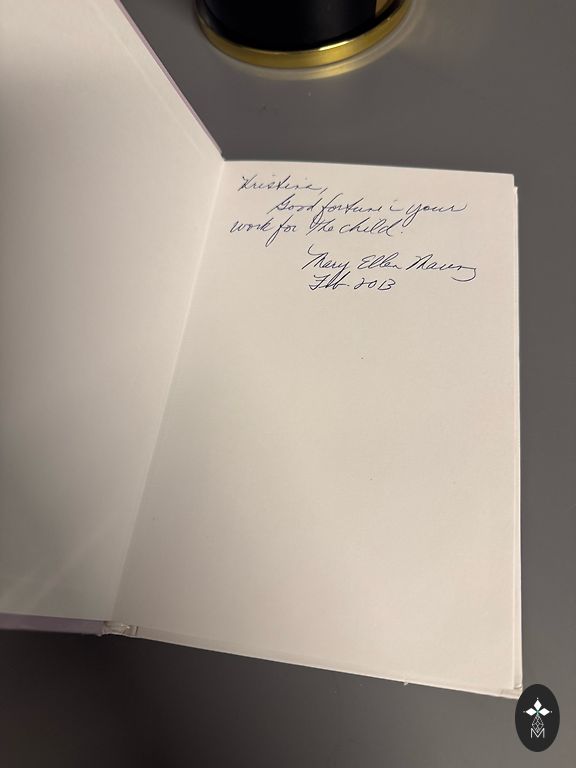 Kristina,
Good fortune i your
work for the child.
Mary Ellen
Feb. 2013
M